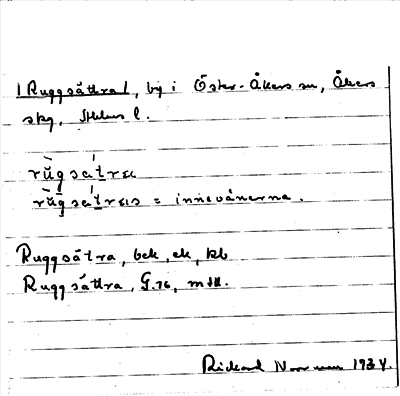 [Ruggsättra], by i Öster-Åkers sn, Åkers
skg, Sthlms l.
rùg sátra
rùg sátras = innevånerna.
Ruggsätra, bek, ek, kb
Ruggsättra, G.76,
Rickard Norrman 1934.